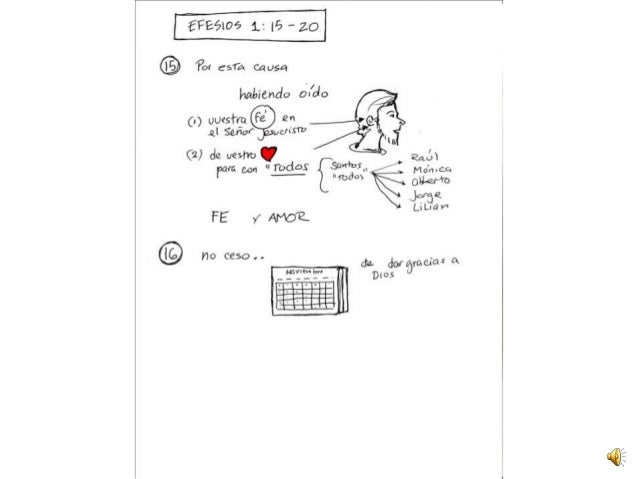 EFESIOS 1:15-20
15 Por esta causa
habiendo oído
(1) vuestra fé en
el Señor Jesucristo
(2) de vestro
para con "Todos
Santos
"Todos"
Raúl
Mónica
Alberto
Jorge
Lilian
FE Y AMOR
16 no ceso..
Noviembre
de dar gracias a
Dios